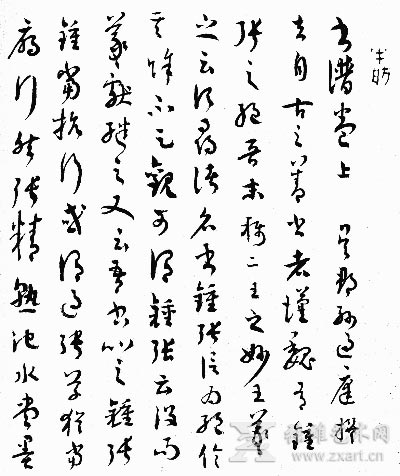 書譜卷上 吳郡孫過庭撰
夫自古之善書者漢魏有鍾
張之絕晉末稱二王之妙王羲
之云頃尋諸名書鍾張信為絕倫
其餘不足觀可謂鍾張云沒而
羲獻繼之又云吾書比之鍾張
鍾當抗行或謂過之張草猶當
雁行然張精熟池水盡墨
www.zxart.cn